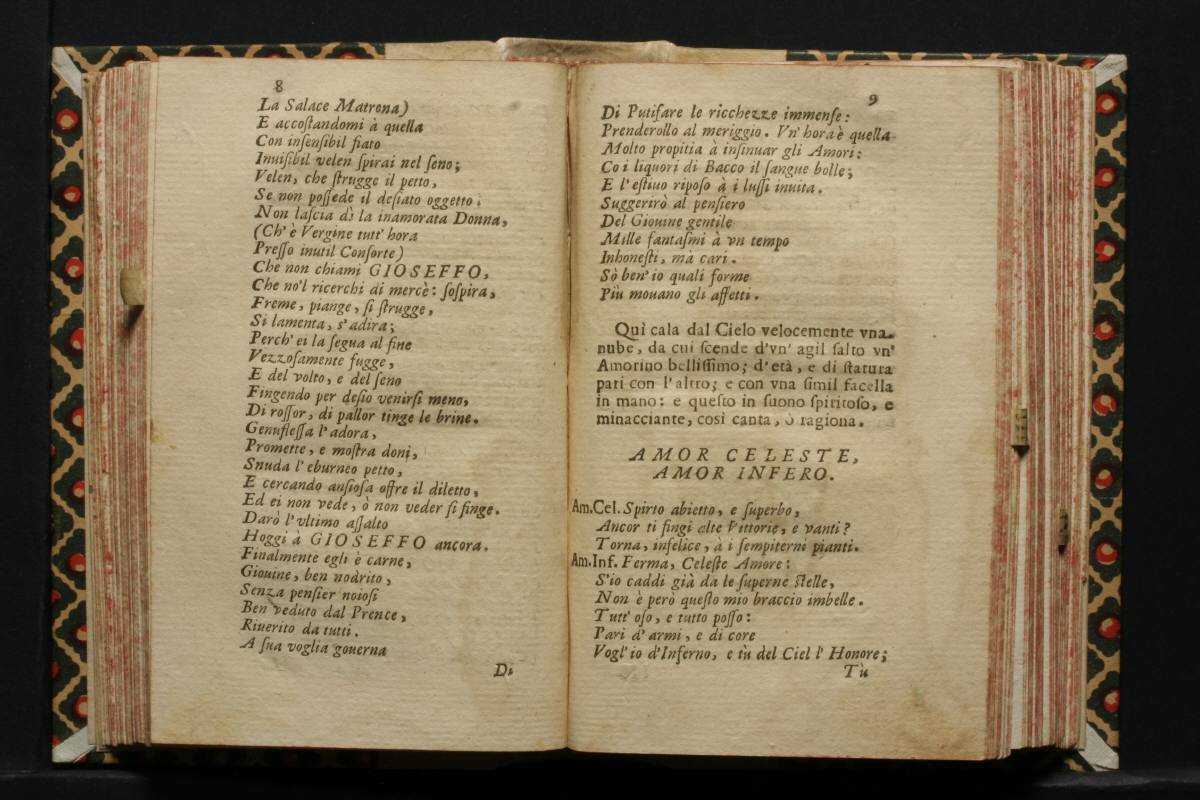 8
La Salace Matrona)
E accoſtandomi à quella
Con inſenſibil fiato
Inuiſibil velen ſpirai nel ſeno;
Velen, che ſtrugge il petto,
Se non poſſede il deſiato oggetto.
Non laſcia dì la inamorata Donna,
(Ch' è Vergine tutt' hora
Preſſo inutil Conſorte)
Che non chiami GIOSEFFO,
Che no'l ricerchi di mercè: ſoſpira,
Freme, piange, ſi ſtrugge,
Si lamenta, s' adira;
Perch' ei la ſegua al fine
Vezzoſamente fugge,
E del volto, e del ſeno
Fingendo per deſio venirſi meno,
Di roſſor, di pallor tinge le brine.
Genufleſſa l' adora,
Promette, e moſtra doni,
Snuda l' eburneo petto,
E cercando anſioſa offre il diletto,
Ed ei non vede, ò non veder ſi finge.
Darò l' vltimo aſſalto
Hoggi à GIOSEFFO ancora.
Finalmente egli è carne,
Giouine, ben nodrito,
Senza penſier noioſi
Ben veduto dal Prence,
Riuerito da tutti.
A ſua voglia gouerna
Di
9
Di Putifare le ricchezze immenſe:
Prenderollo al meriggio. Vn' hora è quella
Molto propitia à inſinuar gli Amori:
Co i liquori di Bacco il ſangue bolle;
E l' eſtiuo ripoſo à i luſſi inuita.
Suggerirò al penſiero
Del Giouine gentile
Mille fantaſmi à vn tempo
Inhoneſti, mà cari.
Sò ben' io quali forme
Più mouano gli affetti.
Quì cala dal Cielo velocemente vna
nube, da cui ſcende d'vn' agil ſalto vn'
Amorino belliſſimo; d'età, e di ſtatura
pari con l'altro; e con vna ſimil facella
in mano: e queſto in ſuono ſpiritoſo, e
minacciante, così canta, ò ragiona.
AMOR CELESTE,
AMOR INFERO.
Am.Cel. Spirto abietto, e ſuperbo,
Ancor ti fingi alte Vittorie, e vanti?
Torna, infelice, à i ſempiterni pianti.
Am.Inf. Ferma, Celeſte Amore:
S'io caddi già da le ſuperne ſtelle,
Non è però queſto mio braccio imbelle.
Tutt' oſo, e tutto poſſo:
Pari d' armi, e di core
Vogl' io d'Inferno, e tù del Ciel l' Honore;
Tù